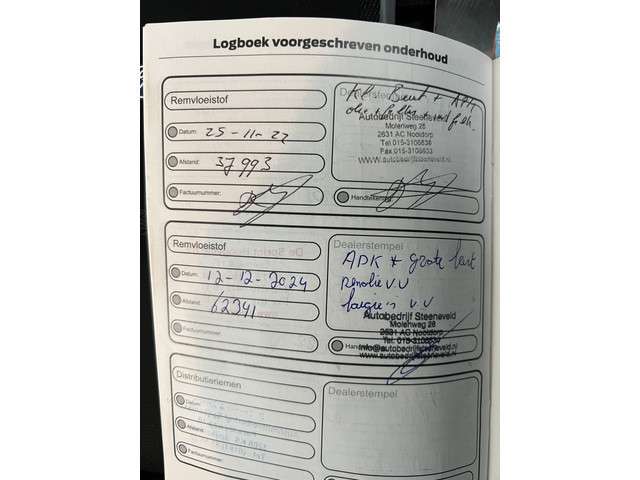 Logboek voorgeschreven onderhoud
Remvloeistof
Datum: 25-11-22
Afstand: 37993
Factuurnummer:
Dealerstempel
kl Beurt + APK
olie + filter +
Autobedrijf Steeneveld
Molenweg 28
2631 AC Nootdorp
Tel.015-3108636
Fax.015-3108633
www.autobedrijfsteeneveld.nl
Handtekening:
Remvloeistof
Datum: 12-12-2024
Afstand: 62341
Factuurnummer:
Dealerstempel
APK + grote beurt
remolie V.V
bougie's V.V
Autobedrijf Steeneveld
Molenweg 28
2631 AC Nootdorp
info@autobedrijfsteeneveld.nl
www.autobedrijfsteeneveld.nl
Distributieriemen
Datum:
Afstand:
Factuurnummer:
Dealerstempel